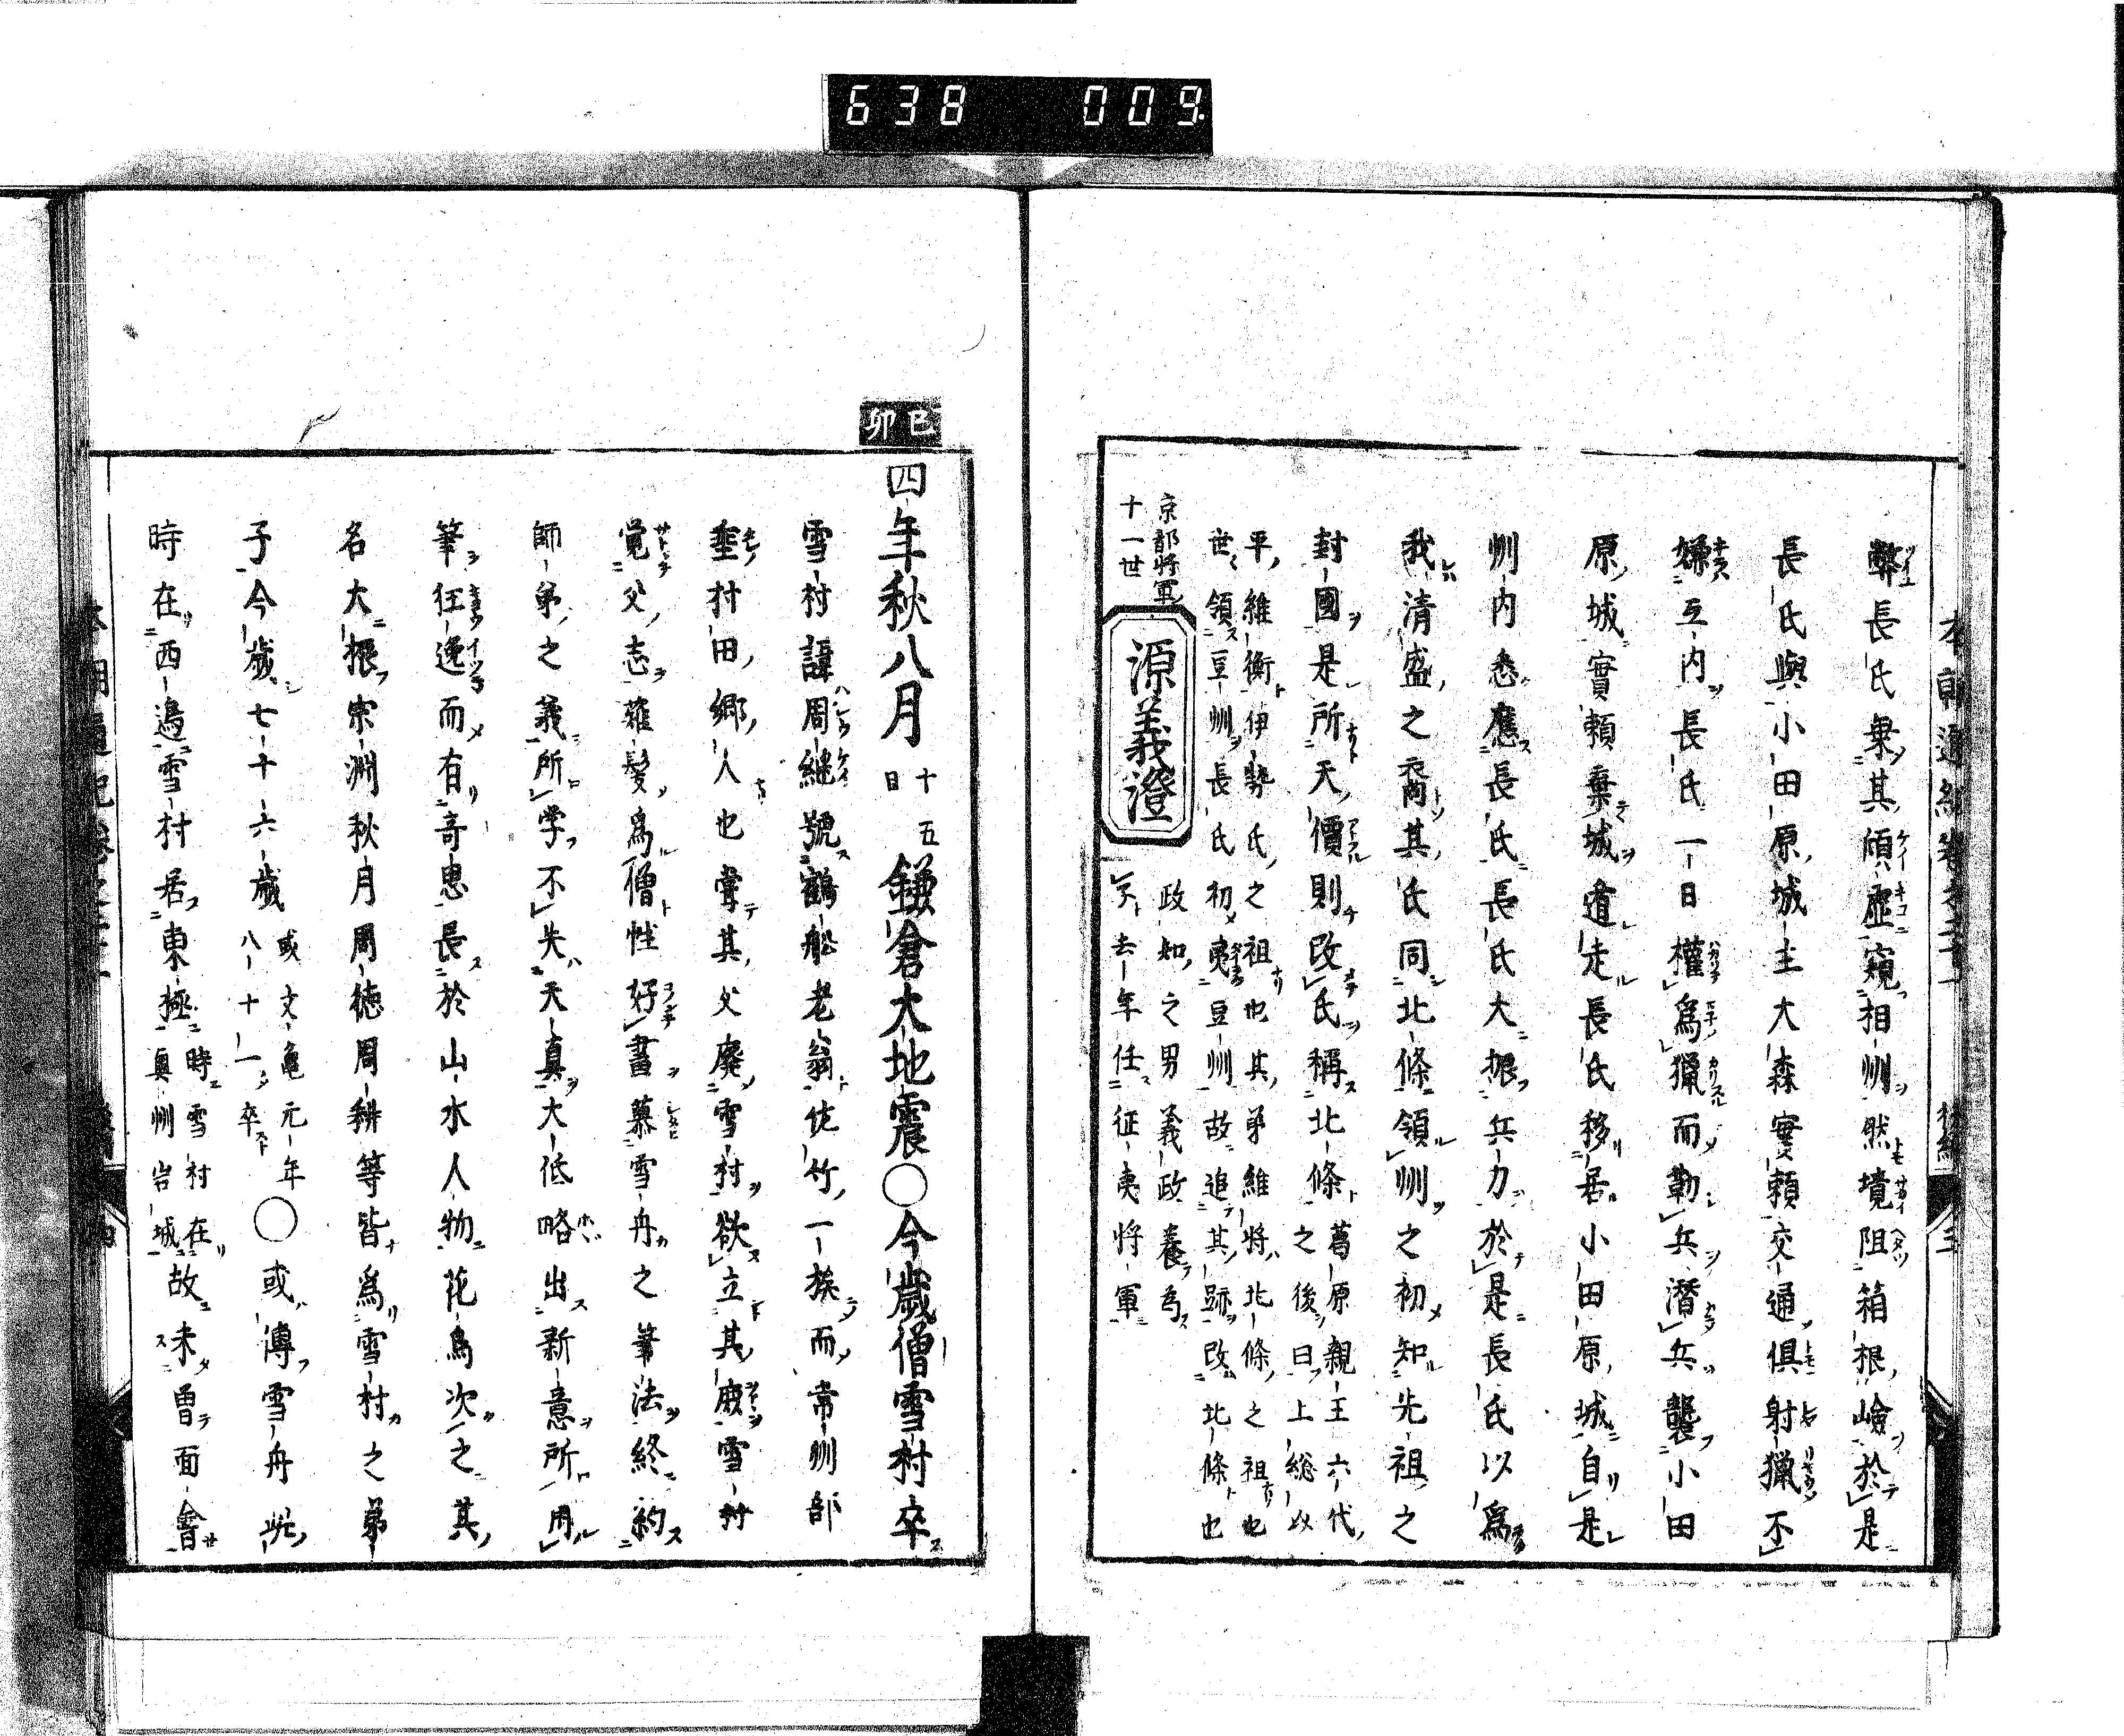 638 009
本朝通紀卷之二十一 後編 三
弊長氏乗其傾虚窺相州然境阻箱根嶮於是
長氏與小田原城主大森實頼交通俱射獵不
嫌互内長氏一日權為獵而勒兵潜兵襲小田
原城實頼棄城逭走長氏移居小田原城自是
州内悉應長氏長氏大振兵力於是長氏以爲
我清盛之裔其氏同北條領州之初知先祖之
封國是所天價則改氏稱北條葛原親王六代
之後曰上総以
平維衡伊勢氏之祖也其弟維将北條之祖也
世領豆州長氏初夷豆州故追其跡改北條也
京都将軍
十一世
源義澄
政知之男義政養為
子去年任征夷将軍
己卯
四年秋八月十五日鎌倉大地震○今歳僧雪村卒
雪村諱周継號鶴船老翁佐竹一族而常州部
埀村田郷人也甞其父廢雪村欲立其庶雪村
覚父志薙髪爲僧性好書慕雪舟之筆法終約
師弟之義所学不失天真大低略出新意所用
筆狂逸而有奇思長於山水人物花鳥次之其
名大振宗淵秋月周徳周耕等皆爲雪村之弟
子今歳七十六歳或文亀元年
八十一卒○或傳雪舟此
時在西邉雪村居東極時雪村在
奥州岩城故未曽面會